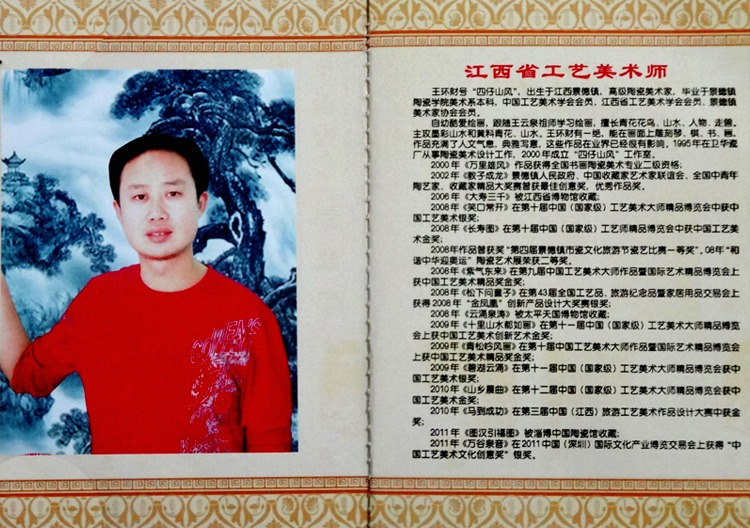 江西省工艺美术师
王环财号“四仔山风”，出生于江西景德镇，高级陶瓷美术家，毕业于景德镇
陶瓷学院美术系本科，中国工艺美术学会会员，江西省工艺美术学会会员，景德镇
美术家协会会员。
自幼酷爱绘画，跟随王云泉祖师学习绘画，擅长青花花鸟、山水、人物、走兽。
主攻墨彩山水和黄料青花、山水。王环财有一绝，能在画面上雕刻琴、棋、书、画，
作品充满了人文气息，典雅写意，这些作品在业界已经很有影响。1995年在卫华瓷
厂从事陶瓷美术设计工作，2000年成立“四仔山风”工作室。
2000年《万里雄风》作品获得全国书画陶瓷美术专业二级资格；
2002年《教子成龙》景德镇人民政府、中国收藏家艺术家联谊会、全国中青年
陶艺家、收藏家精品大奖赛曾获最佳创意奖，优秀作品奖。
2006年《大寿三千》被江西省博物馆收藏；
2008年《笑口常开》在第十届中国（国家级）工艺美术大师精品博览会上获中
国工艺美术银奖；
2008年《长寿图》在第十届中国（国家级）工艺师精品博览会中获中国工艺美
术金奖；
2008年作品曾获奖“第四届景德镇市瓷文化旅游节瓷艺比赛一等奖”。08年“和
谐中华迎奥运”陶瓷艺术展荣获二等奖。
2008年《紫气东来》在第九届中国工艺美术大师作品暨国际艺术精品博览会上
获中国工艺美术精品奖金奖；
2008年《松下问童子》在第43届全国工艺品、旅游纪念品暨家居用品交易会上
获得2008年“金凤凰”创新产品设计大奖赛银奖；
2008年《云涌泉涛》被太平天国博物馆收藏；
2009年《十里山水都如画》在第十一届中国（国家级）工艺美术大师精品博览
会上获中国工艺美术创新艺术金奖；
2009年《青松钞风画》在第十届中国工艺美术大师作品暨国际艺术精品博览会
上获中国工艺美术精品奖金奖；
2009年《碧湖云涌》在第十一届中国（国家级）工艺美术大师精品博览会获中
国工艺美术银奖；
2010年《山乡晨曲》在第十二届中国（国家级）工艺美术大师精品博览会获中
国工艺美术金奖；
2010年《马到成功》在第三届中国（江西）旅游工艺美术作品设计大赛中获金
奖；
2011年《图汉引福图》被淄博中国陶瓷馆收藏；
2011年《万谷泉音》在2011中国（深圳）国际文化产业博览交易会上获得“中
国工艺美术文化创意奖”银奖。